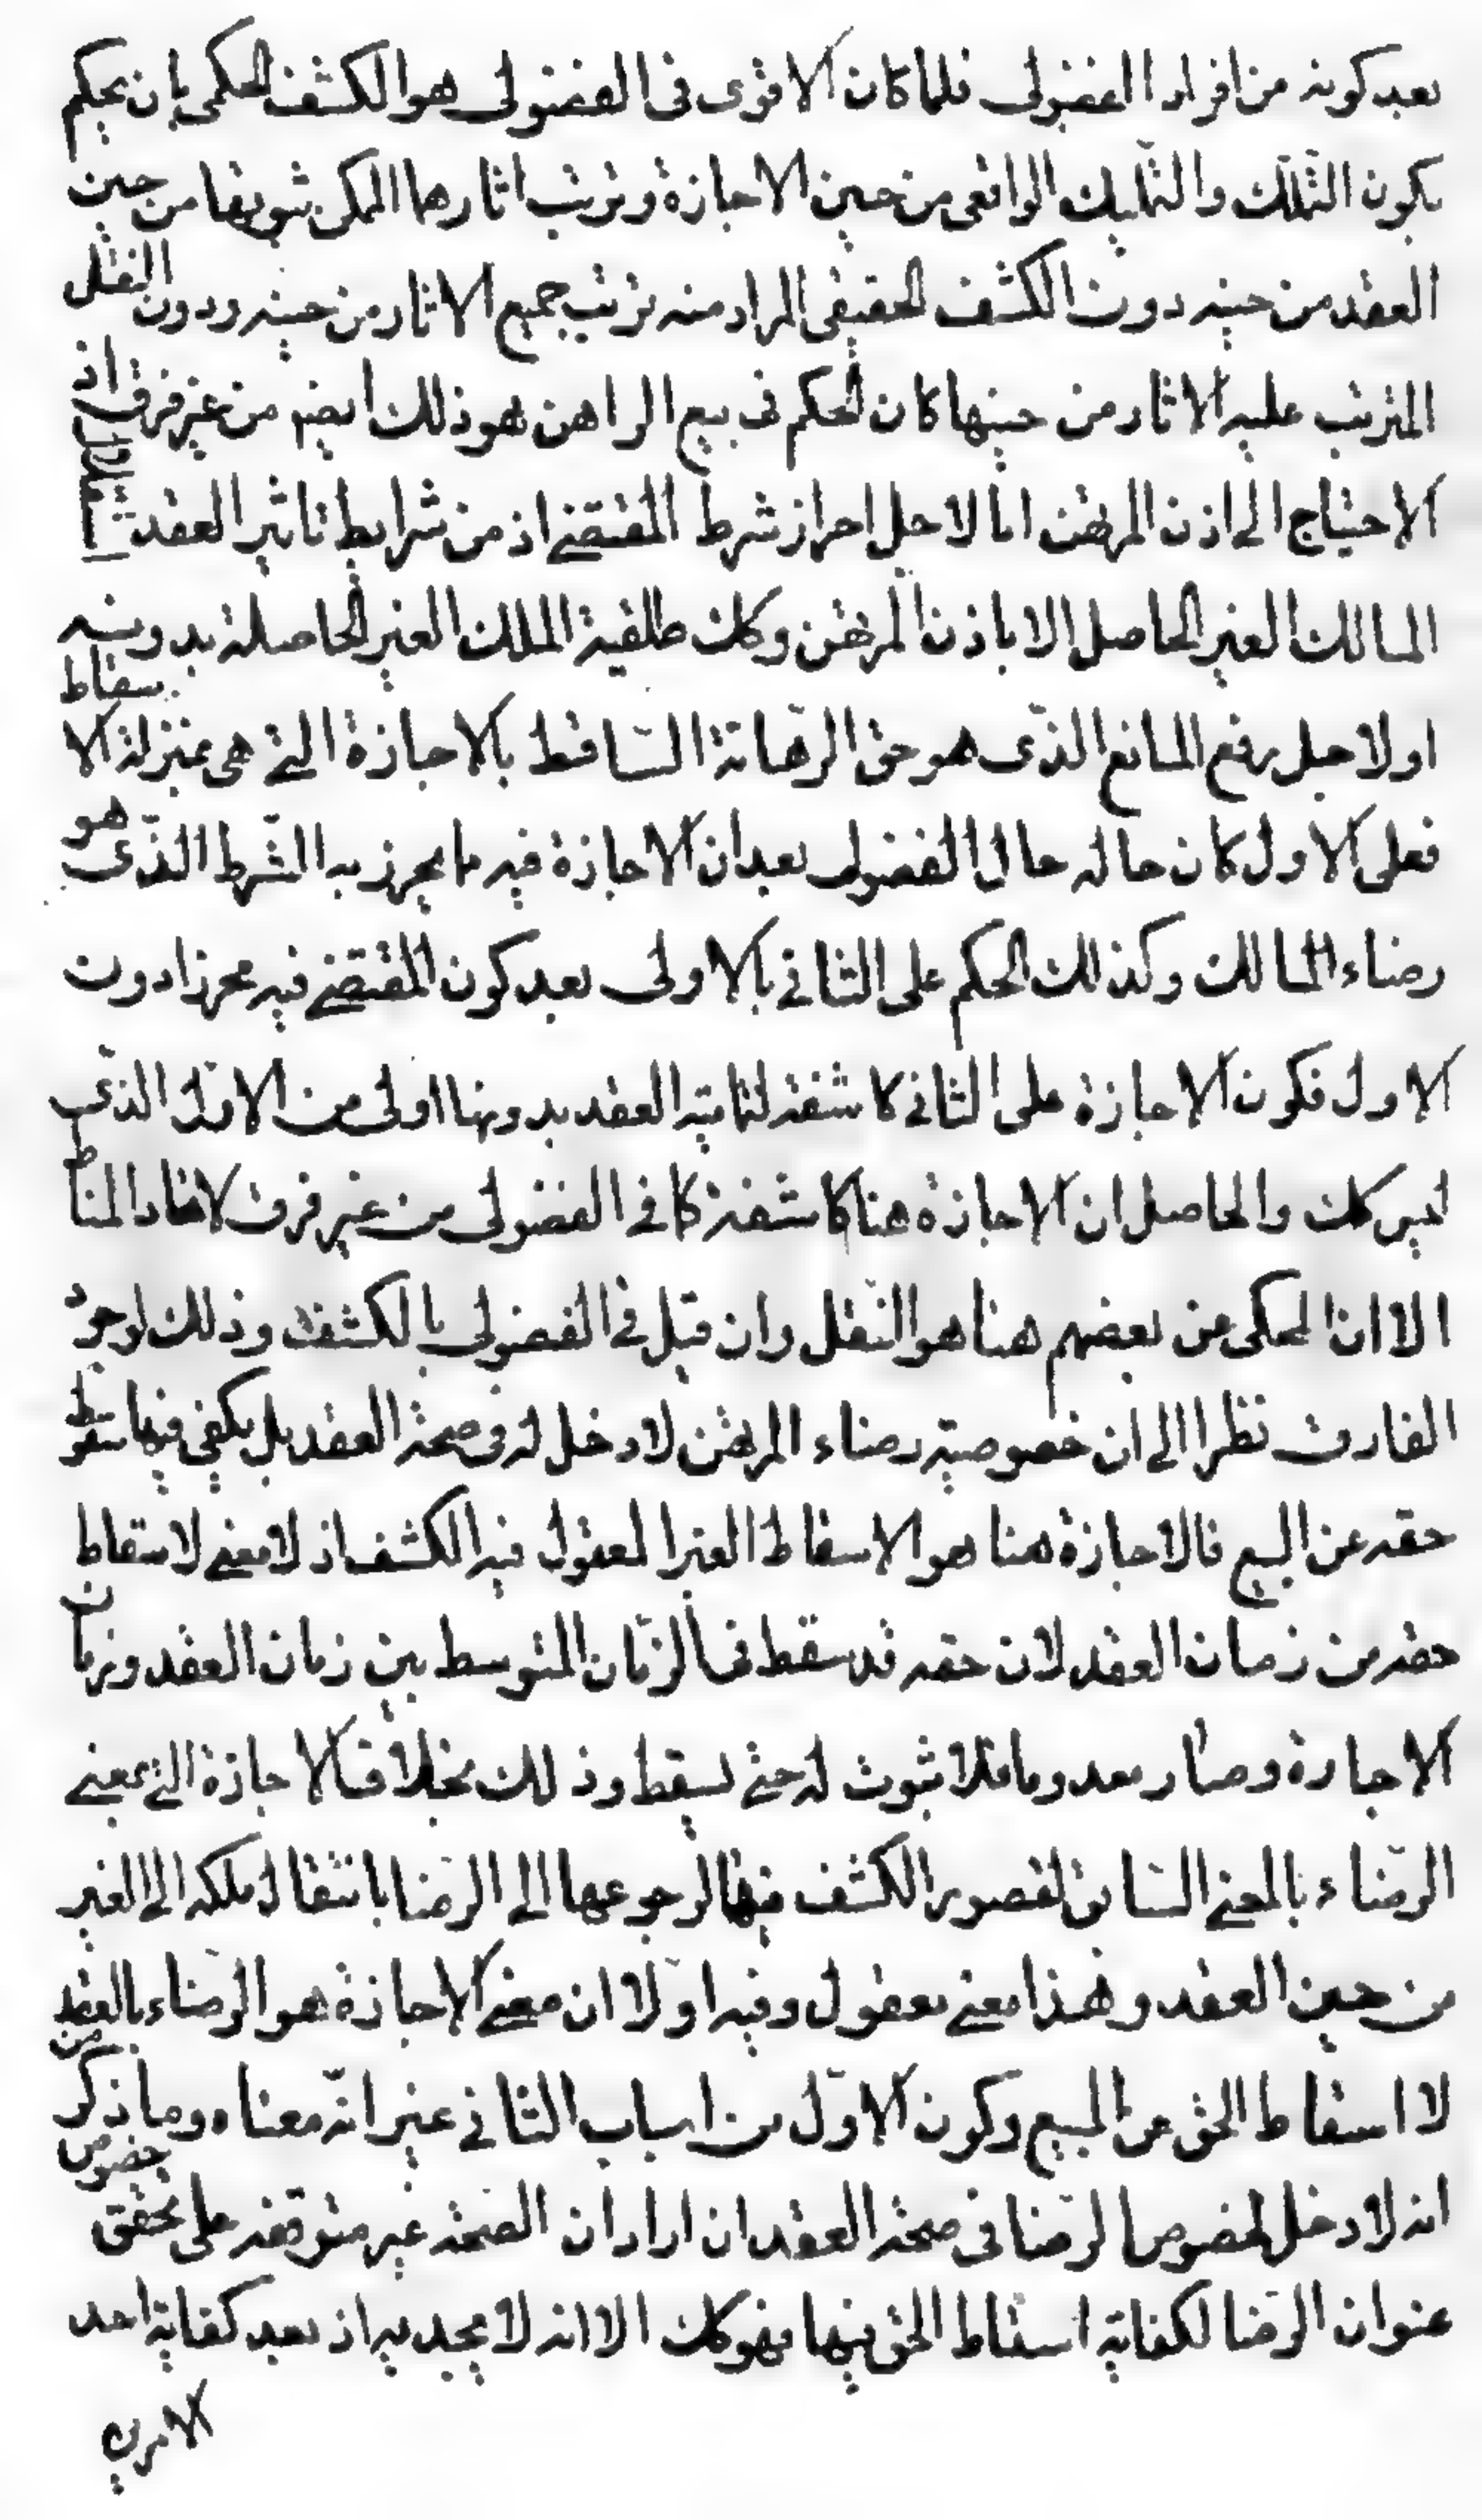 بعد كونه من افراد الفضولى فلما كان الاقوى فى الفضولى هو الكشف الحكمى بان يحكم
بكون التملك والتمليك الواقعى من حين الاجازة وترتيب اثارهما الممكن ثبوتها من حين
العقد من حينه دون الكشف الحقيقى المراد منه ترتيب جميع الاثار من حينه ودون النقل
المترتب عليه الاثار من حينها كان الحكم فى بيع الراهن هو ذلك ايضم من غير فرق اذ
الاحتياج الى اذن المرتهن اما لاجل احراز شرط المقتضے اذ من شرايط تاثير العقد استقلال
المالك الغير الحاصل الا باذن المرتهن وكك طلقية الملك الغير الحاصلة بدونه
او لاجل رفع المانع الذى هو حق الرهانة الساقط بالاجازة التے هى بمنزلة الاسقاط
فعلى الاول كان حاله حال الفضولى بعد ان الاجازة فيه ما يحرز به الشرط الذى هو
رضاء المالك وكذلك الحكم على الثانے بالاولى بعد كون المقتضے فيه محرزا دون
الاول فكون الاجازة على الثانے كاشفة لتمامية العقد بدونها اولى من الاول الذى
ليس كك والحاصل ان الاجازة هنا كاشفة كما فے الفضولى من غير فرق لاتحاد المناط
الا ان المحكى عن بعضهم هنا هو النقل وان قيل فے الفضولى بالكشف وذلك لوجود
الفارق نظرا الى ان خصوصية رضاء المرتهن لا دخل له فى صحة العقد بل يكفى فيها سقوط
حقه عن البيع فالاجازة هنا هو الاسقاط الغير المعقول فيه الكشف اذ لا معنے لاسقاط
حقه من زمان العقد لان حقه قد سقط فى الزمان المتوسط بين زمان العقد وزمان
الاجازة وصار معدوما فلا ثبوت له حتے يسقط وذلك بخلاف الاجازة التے بمعنے
الرضاء بالمعنے السابق لتصوير الكشف فيها لرجوعها الى الرضا بانتقال ملكه الى الغير
من حين العقد وهذا معنے معقول وفيه اولا ان معنے الاجازة هو الرضاء بالعقد
لا اسقاط الحق عن المبيع وكون الاول من اسباب الثانے غير انه معناه وما ذكر من
انه لا دخل لخصوص الرضا فى صحة العقد ان اراد ان الصحة غير متوقفة على تحقق خصوص
عنوان الرضا لكفاية اسقاط الحق فيها فهو كك الا انه لا يجديه اذ بعد كفاية احد
الامرين